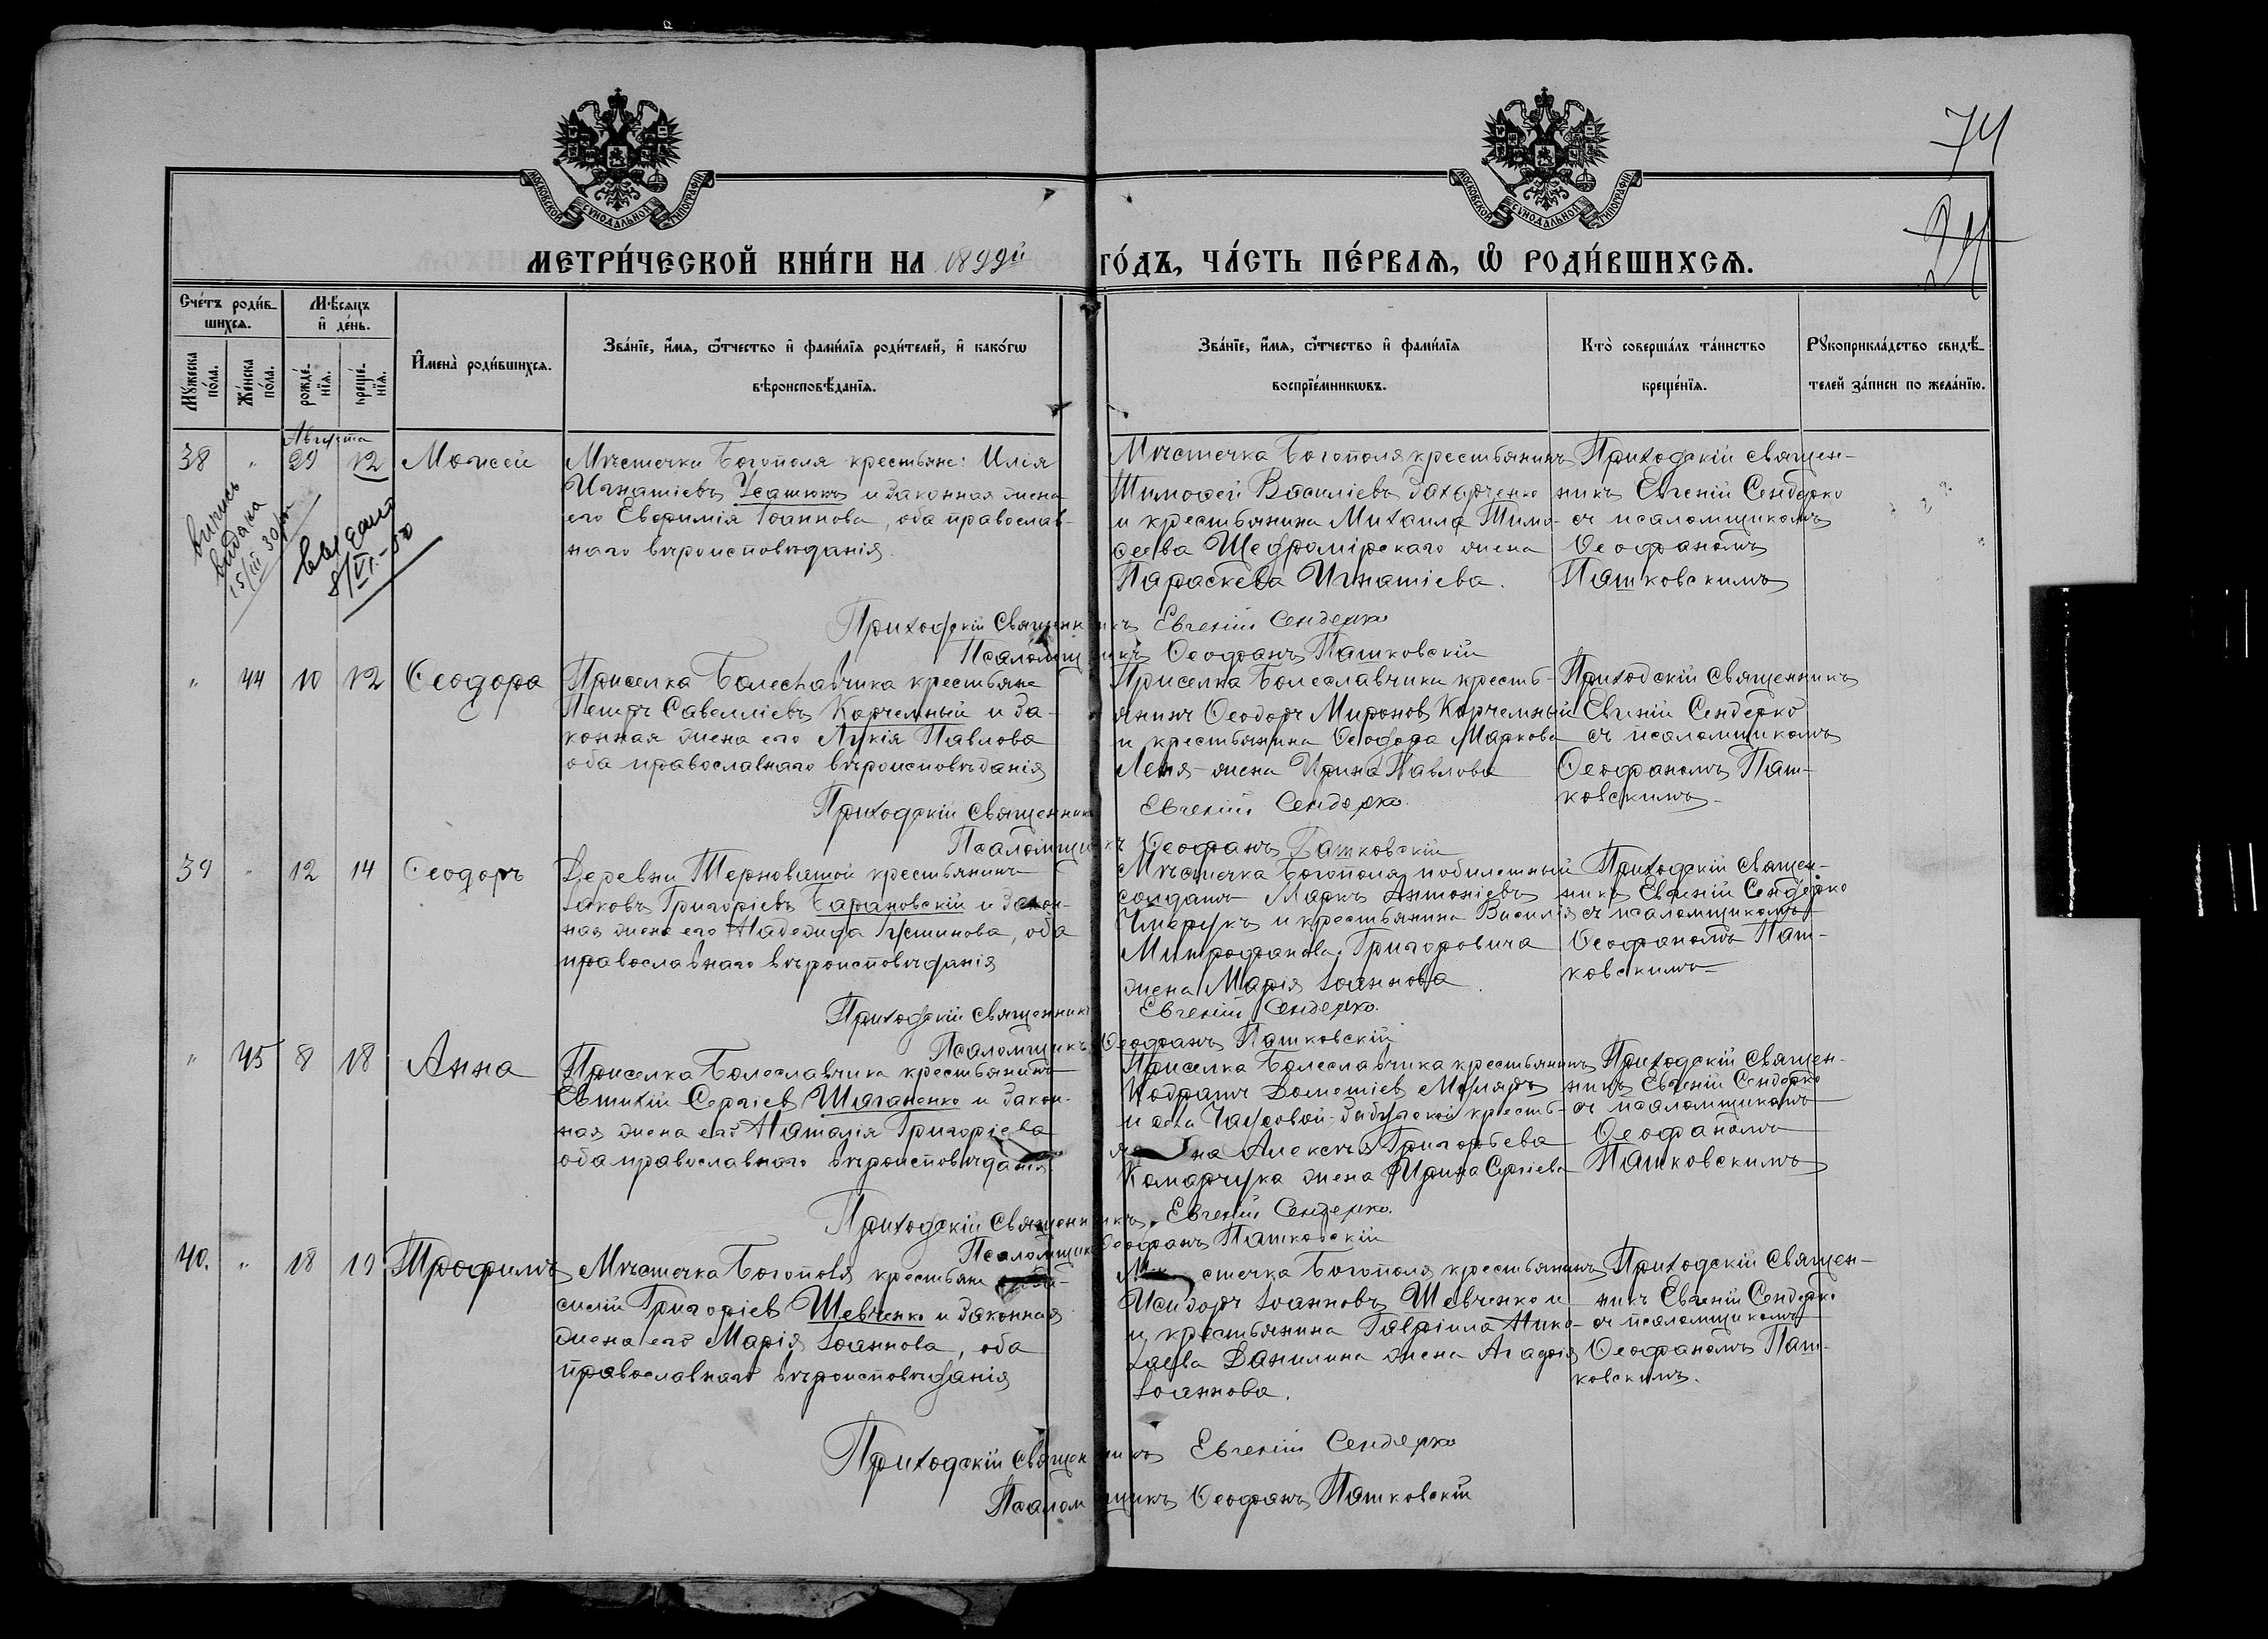 74
24
МОСКОВСКОЙ СУНОДАЛЬНОЙ ТИПОГРАФІИ
МОСКОВСКОЙ СУНОДАЛЬНОЙ ТИПОГРАФІИ
МЕТРИ́ЧЕСКОЙ КНИ́ГИ НА 1899й ГО́ДЪ, ЧА́СТЬ ПЕ́РВАЯ, Ѡ РОДИ́ВШИХСЯ.
Сче́тъ роди́в-
шихся.
Мꙋжеска по́ла.
Же́нска по́ла.
Мѣ́сяцъ
и де́нь.
рожде́-
нїя.
креще́-
нїя.
Имена̀ роди́вшихся.
Зва́нїе, и́мя, ѻ́тчество и фами́лїя роди́телей, и како́гѡ
вѣроисповѣ́данїя.
Зва́нїе, и́мя, ѻ́тчество и фами́лїя
воспрїе́мникѡвъ.
Кто̀ соверша́лъ та́инство
креще́нїя.
Рꙋкоприкла́дство свидѣ́-
телей за́писи по жела́нїю.
Августа
38 " 29 12 Моисей
випись
видана
15/III 30
видано
8/VI-50
Мѣстечка Богополя крестьяне: Илія
Игнатіевъ Усатюкъ и законная жена
его Евѳимія Іоаннова, оба православ-
наго вѣроисповѣданія.
Мѣстечка Богополя крестьянинъ
Тимоѳей Василіевъ Захарченко
и крестьянина Михаила Тимо-
ѳеева Щедромірскаго жена
Параскева Игнатіева.
Приходскій священ-
никъ Евгеній Сендерко
съ псаломщикомъ
Ѳеофаномъ
Пашковскимъ
Приходскій священникъ Евгеній Сендерко
Псаломщикъ Ѳеофанъ Пашковскій
" 44 10 12 Ѳеодора
Приселка Болеславчика крестьяне
Петръ Савелліевъ Корчемный и за-
конная жена его Лукія Павлова
оба православнаго вѣроисповѣданія
Приселка Болеславчика кресть-
янинъ Ѳеодоръ Мироновъ Корчемный
и крестьянина Ѳеодора Маркова
жена Ирина Павлова
Приходскій священникъ
Евгеній Сендерко
съ псаломщикомъ
Ѳеофаномъ Паш-
ковскимъ
Приходскій священникъ Евгеній Сендерко.
Псаломщикъ Ѳеофанъ Пашковскій
39 " 12 14 Ѳеодоръ
Деревни Терноватой крестьянинъ
Іаковъ Григоріевъ Барановскій и закон-
ная жена его Надежда Іустинова, оба
православнаго вѣроисповѣданія
Мѣстечка Богополя побилетный
солдатъ Маркъ Антоніевъ
и крестьянина Василія
Митрофанова Григоровича
жена Марія Іоаннова
Приходскій священ-
никъ Евгеній Сендерко
съ псаломщикомъ
Ѳеофаномъ Паш-
ковскимъ
Приходскій священникъ Евгеній Сендерко.
Псаломщикъ Ѳеофанъ Пашковскій
" 45 8 18 Анна
Приселка Болеславчика крестьянинъ
Евтихій Сергіев Шаганенко и закон-
ная жена его Наталія Григоріева
оба православнаго вѣроисповѣданія
Приселка Болеславчика крестьянинъ
Кодратъ Дометіев Маляръ
и села Чаусовой кресть-
на Алексѣя Григорьева
Комарчука жена Ирина Сергіева
Приходскій священ-
никъ Евгеній Сендерко
съ псаломщикомъ
Ѳеофаномъ
Пашковскимъ
Приходскій священникъ Евгеній Сендерко.
Псаломщикъ Ѳеофанъ Пашковскій
40. " 18 19 Трофимъ
Мѣстечка Богополя крестьяне
силій Григоріев Шевченко и законная
жена его Марія Іоаннова, оба
православнаго вѣроисповѣданія
стечка Богополя крестьянинъ
Исидоръ Іоанновъ Шевченко и
и крестьянина Гавріила Нико-
лаева Данилина жена Агафія
Іоаннова.
Приходскій священ-
никъ Евгеній Сендерко
съ псаломщикомъ
Ѳеофаномъ Паш-
ковскимъ.
Приходскій священникъ Евгеній Сендерко
Псаломщикъ Ѳеофанъ Пашковскій